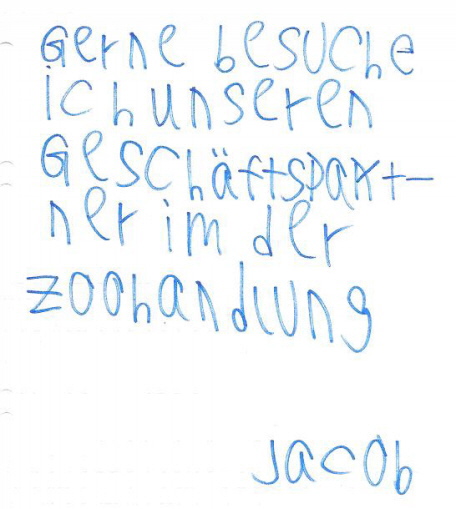 Gerne besuche
ich unseren
Geschäftspart-
ner im der
zoohandlung
Jacob